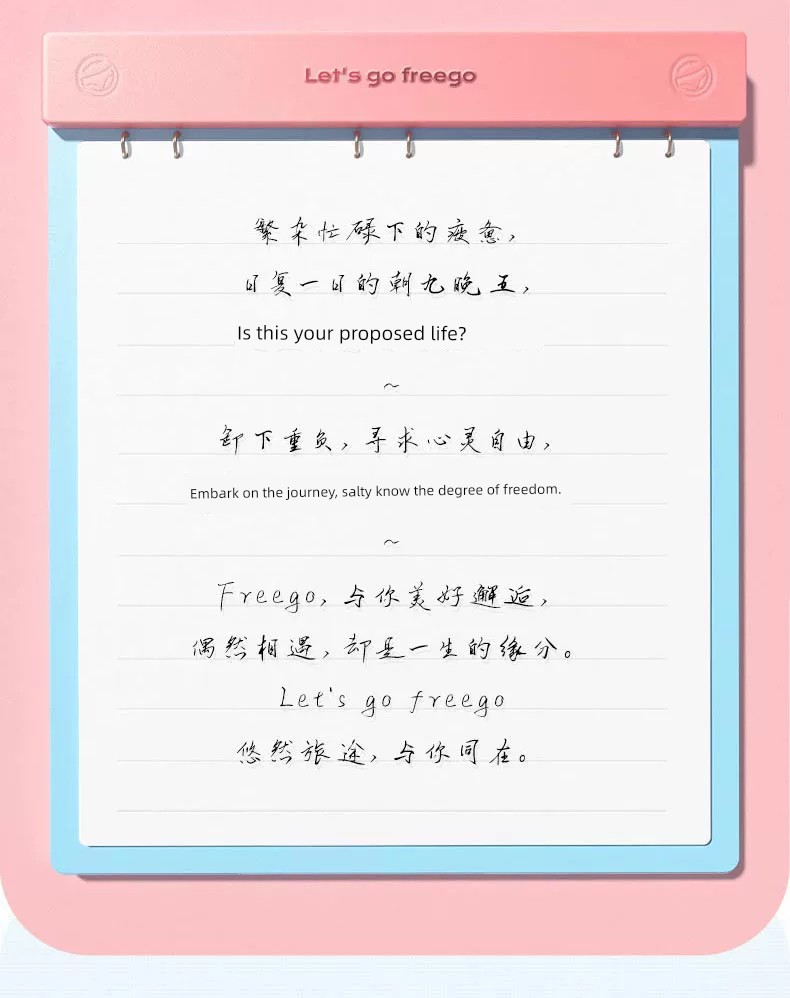 Let's go freego
繁杂忙碌下的疲惫，
日复一日的朝九晚五，
Is this your proposed life?
~
卸下重负，寻求心灵自由，
Embark on the journey, salty know the degree of freedom.
~
Freego，与你美好邂逅，
偶然相遇，却是一生的缘分。
Let's go freego
悠然旅途，与你同在。